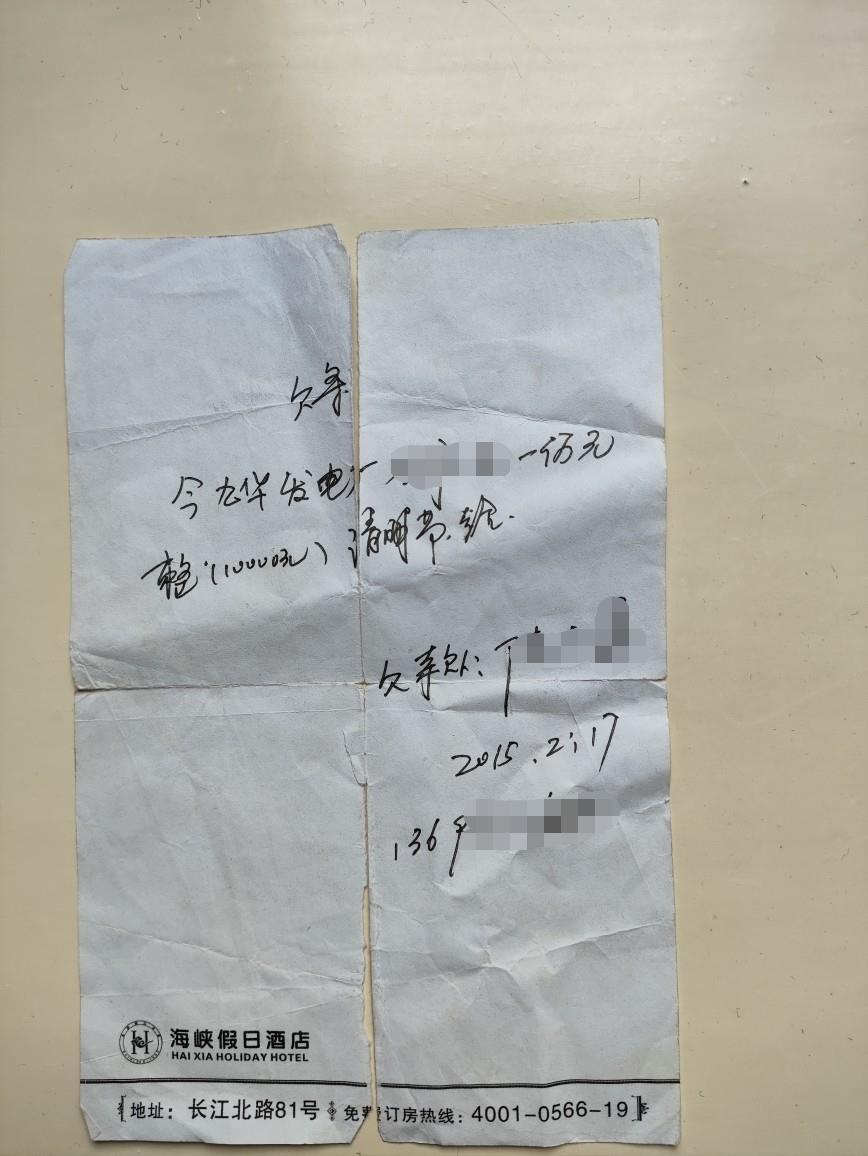 欠条
今九华发电厂 一万元
整(10000元)清明节给.
欠款人:丁
2015.2.17
136
海峡假日酒店
HAI XIA HOLIDAY HOTEL
地址:长江北路81号 免费订房热线:4001-0566-19